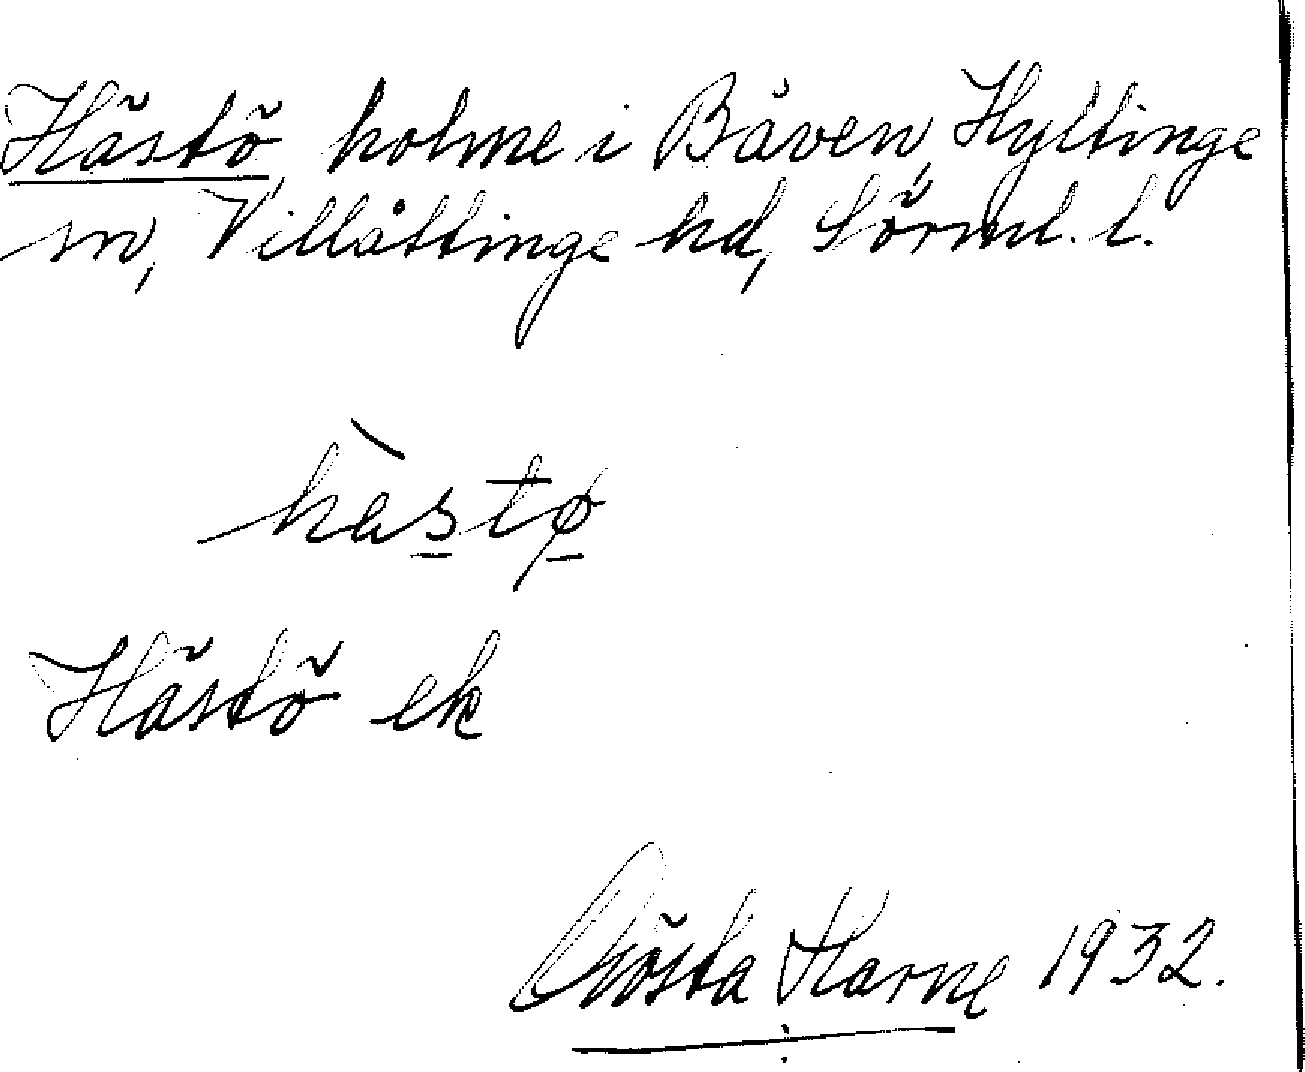 Hästö holme i Båven, Hyltinge
sn, Villåttinge hd, Sörml. l.
hàstø
Hästö ek
Gösta Harne 1932.